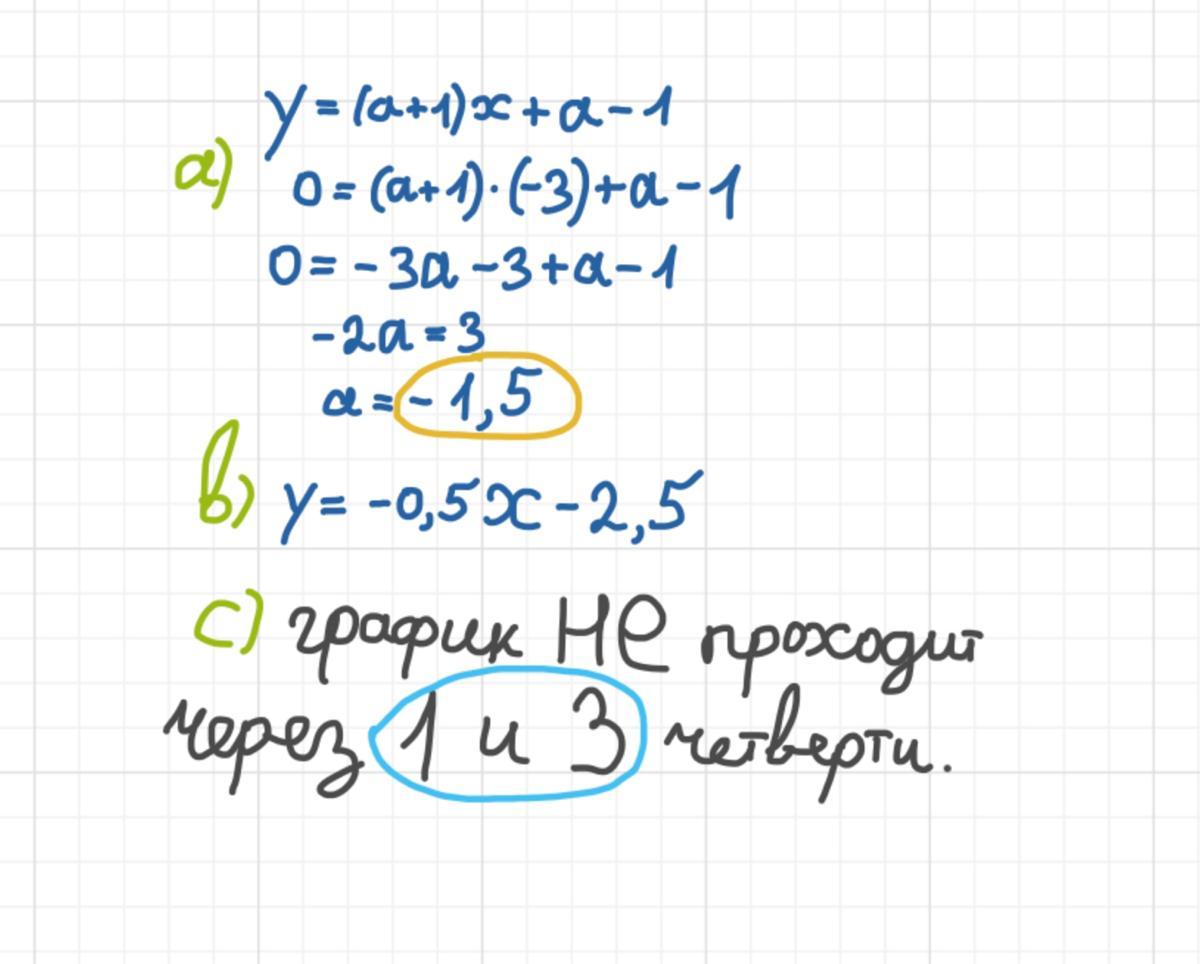 y = (a+1)x + a - 1
a) 0 = (a+1)·(-3) + a - 1
0 = - 3a - 3 + a - 1
-2a = 3
a = - 1,5
b) y = -0,5x - 2,5
c) график НЕ проходит
через 1 и 3 четверти.